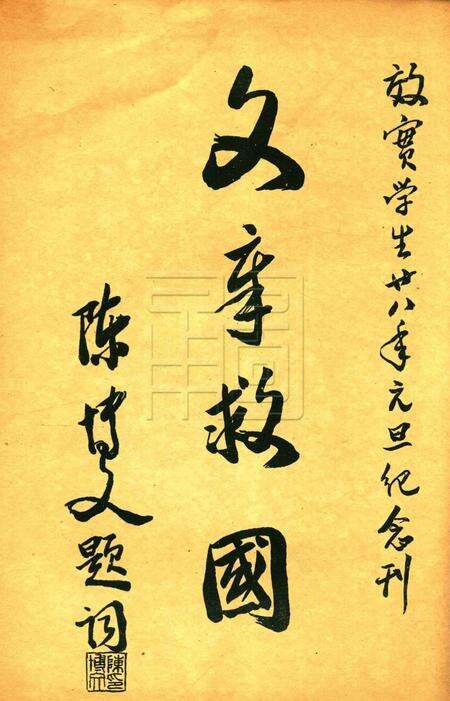 效實学生廿八年元旦纪念刊
文章救國
陈博文題词
陳印
博文